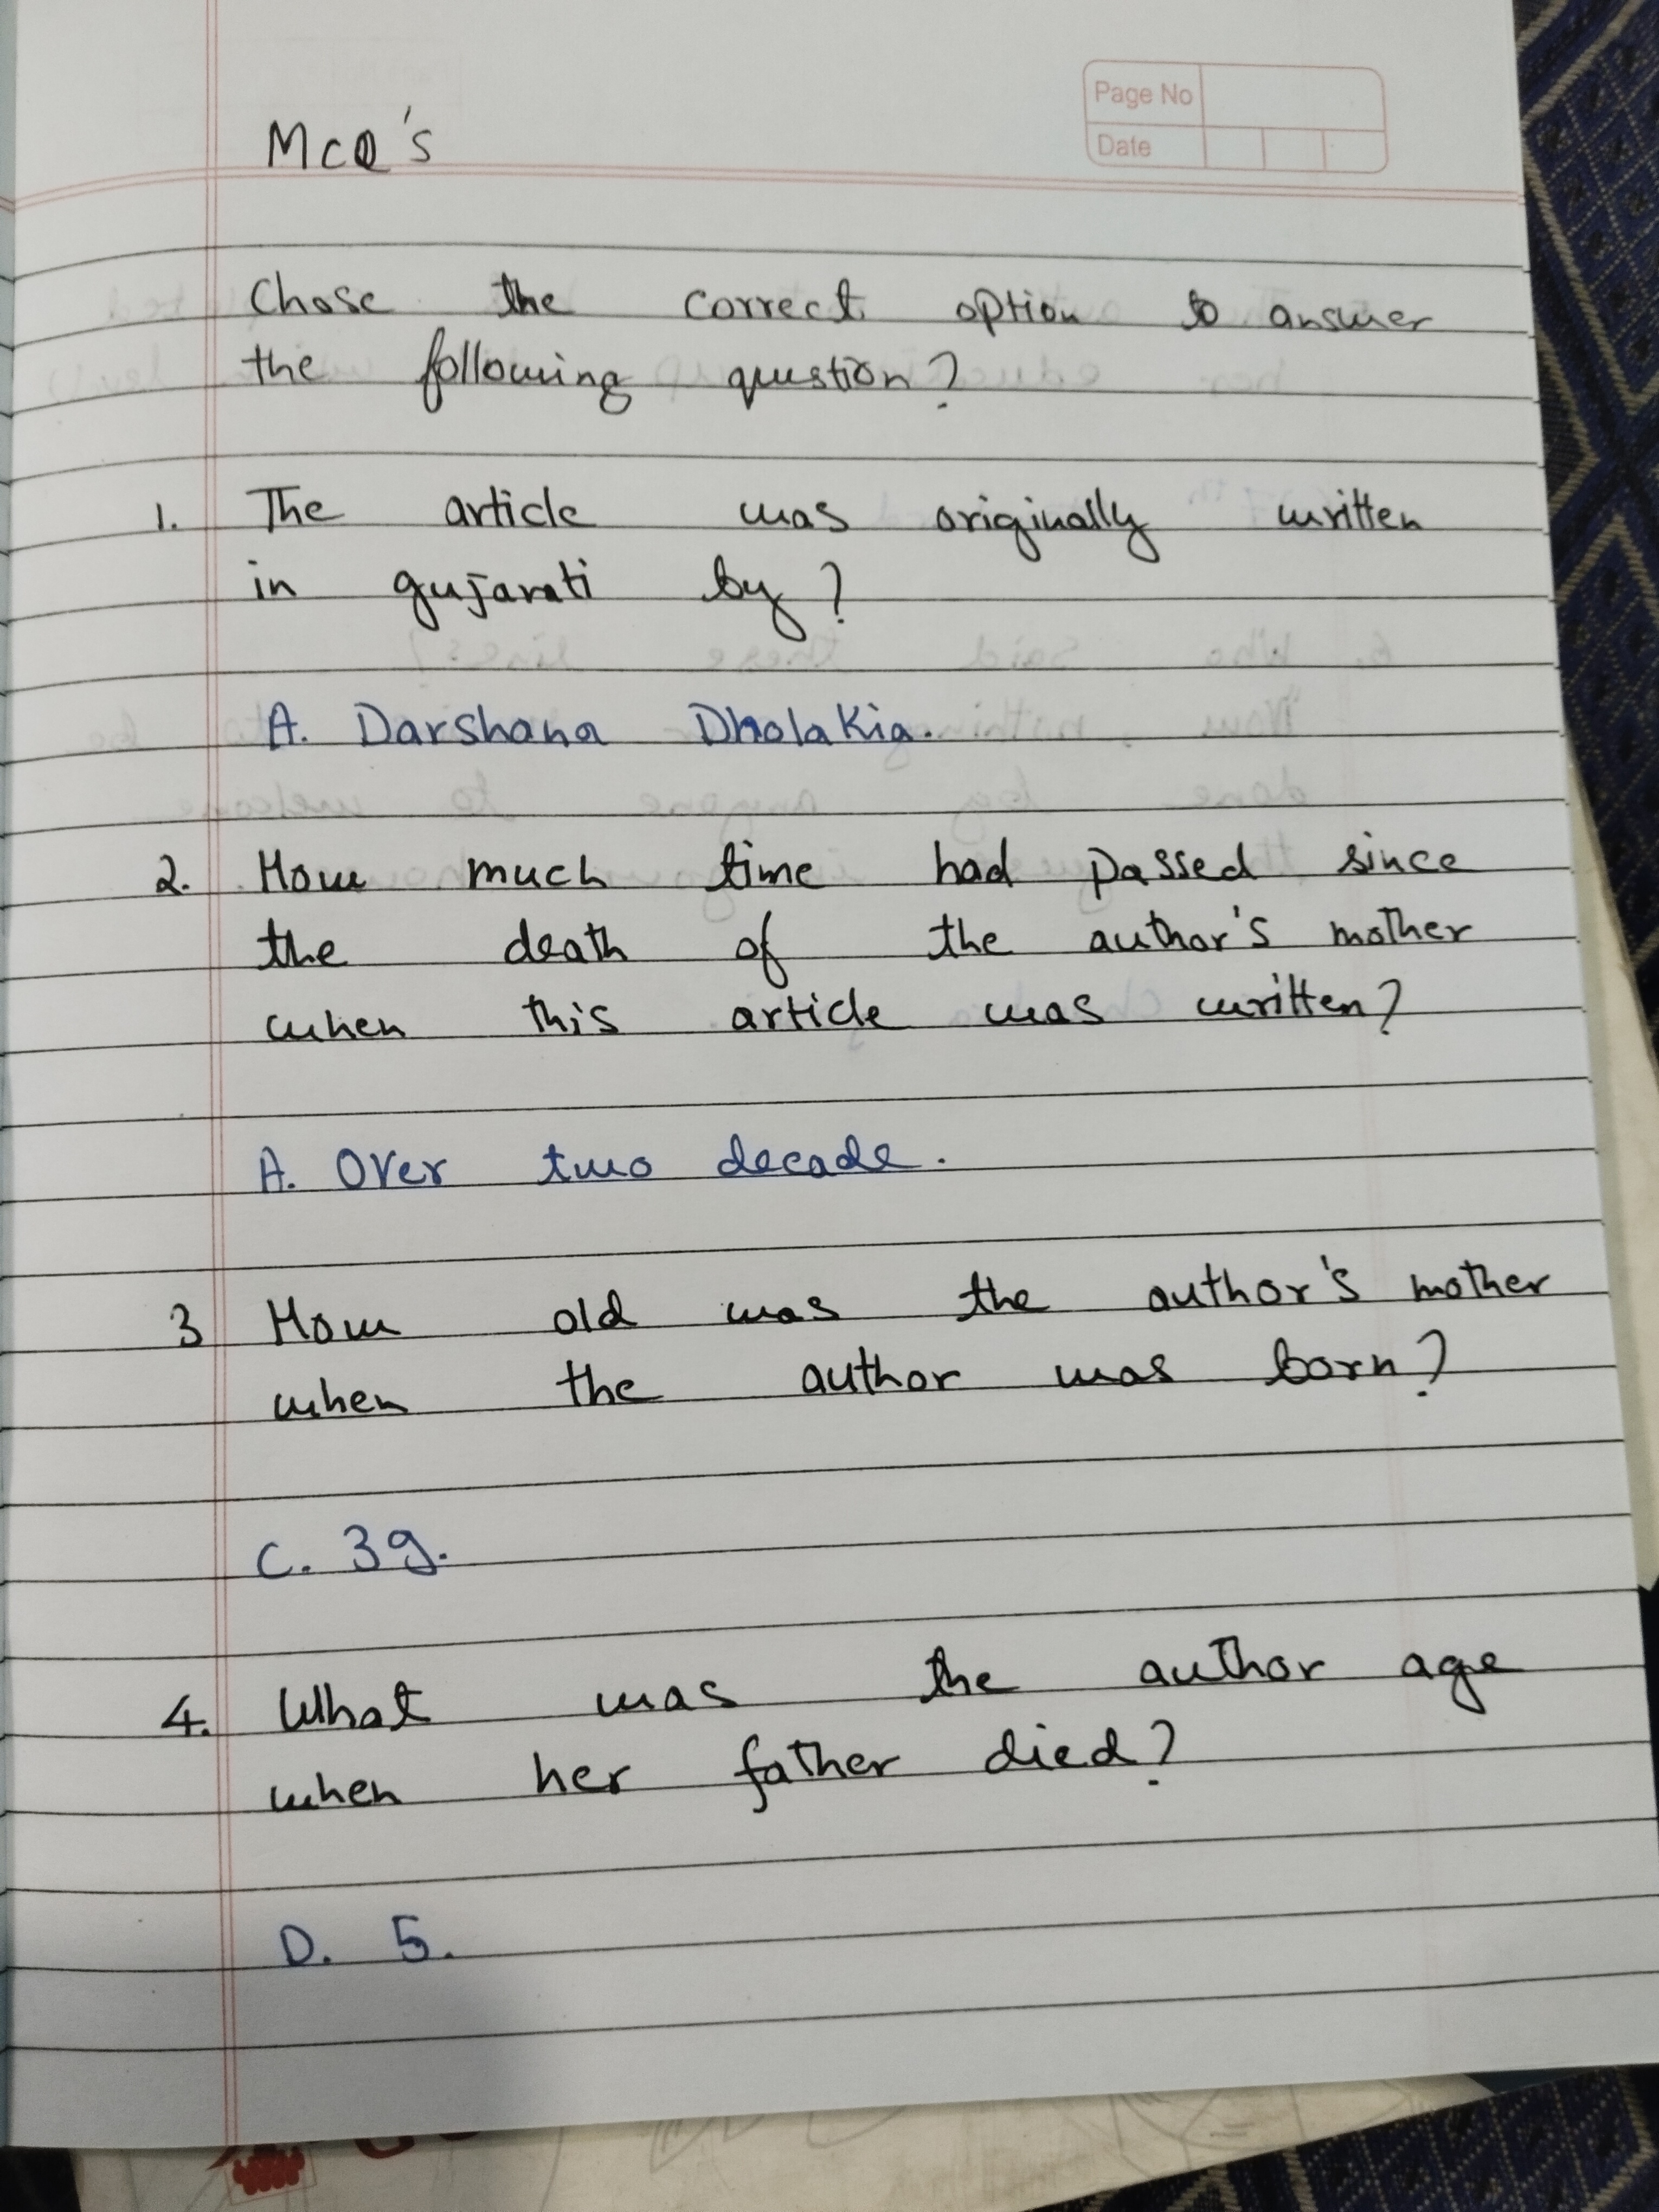 Page No
Date
McQ's
Chose the correct option to answer
the following question?
1. The article was originally written
in gujarati by?
A. Darshana Dholakia.
2. How much time had passed since
the death of the author's mother
when this article was written?
A. Over two decade.
3 How old was the author's mother
when the author was born?
C. 39.
4. What was the author age
when her father died?
D. 5.